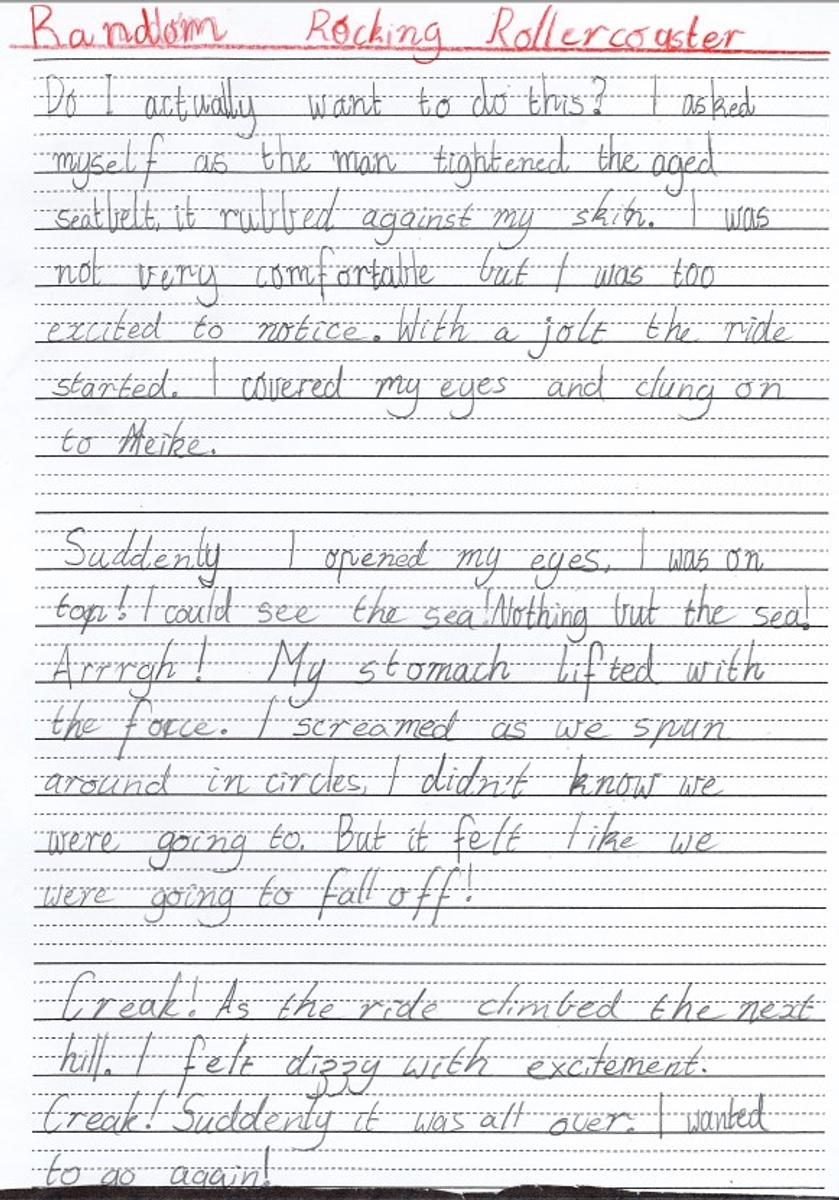 Random Rocking Rollercoaster
Do I actually want to do this? I asked
myself as the man tightened the aged
seatbelt, it rubbed against my skin. I was
not very comfortable but I was too
excited to notice. With a jolt the ride
started. I covered my eyes and clung on
to Meike.
Suddenly I opened my eyes, I was on
top! I could see the sea! Nothing but the sea!
Arrrgh! My stomach lifted with
the force. I screamed as we spun
around in circles, I didn't know we
were going to. But it felt like we
were going to fall off!
Creak! As the ride climbed the next
hill. I felt dizzy with excitement.
Creak! Suddenly it was all over. I wanted
to go again!